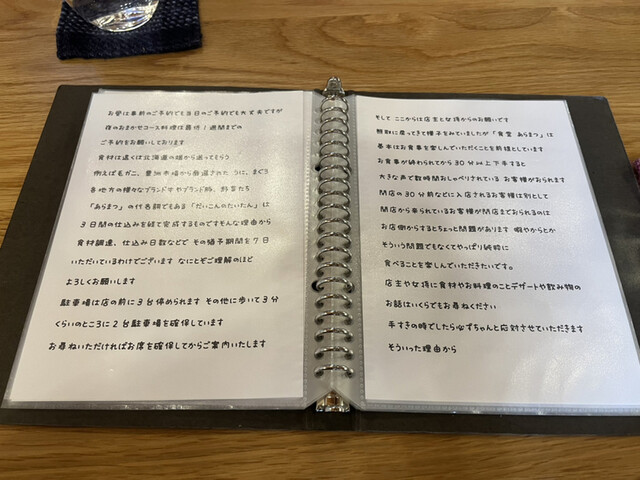 お昼は事前のご予約でも当日のご予約でも大丈夫ですが
夜のおまかせコース料理は最低1週間までの
ご予約をお願いしております
食材は遠くは北海道の端から送ってもらう
例えば毛がに、豊洲市場から厳選された うに、まぐろ
各地方の様々なブランド牛やブランド豚、野菜たち
「あらまつ」の代名詞でもある「だいこんのたいたん」は
3日間の仕込みを経て完成するものですそんな理由から
食材調達、仕込み日数などで その猶予期間を7日
いただいているわけでございます なにとぞご理解のほど
よろしくお願いします
駐車場は店の前に3台停められます その他に歩いて3分
くらいのところに2台駐車場を確保しています
お尋ねいただければお席を確保してからご案内いたします
そして ここからは店主と女将からのお願いです
無取に戻ってきて様子をみていましたが「食堂 あらまつ」は
基本はお食事を楽しんでいただくことを前提としています
お食事が終わられてから30分以上下手すると
大きな声で数時間おしゃべりされている お客様がおられます
閉店の30分前などに入店されるお客様は別として
開店から来られているお客様が閉店までおられるのは
お店側からするとちょっと問題があります 暇やからとか
そういう問題でもなくてやっぱり純粋に
食べることを楽しんでいただきたいです。
店主や女将に食材やお料理のことデザートや飲み物の
お話はいくらでもお尋ねください
手すきの時でしたら必ずちゃんと応対させていただきます
そういった理由から